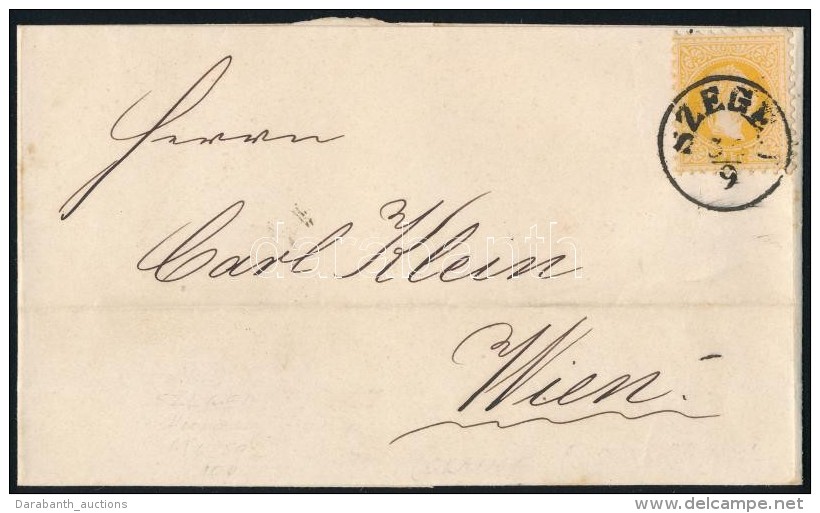 SZEGED
9
Herrn
Carl Klein
Wien.
darabanth
Darabanth_auctions
delcampe.net